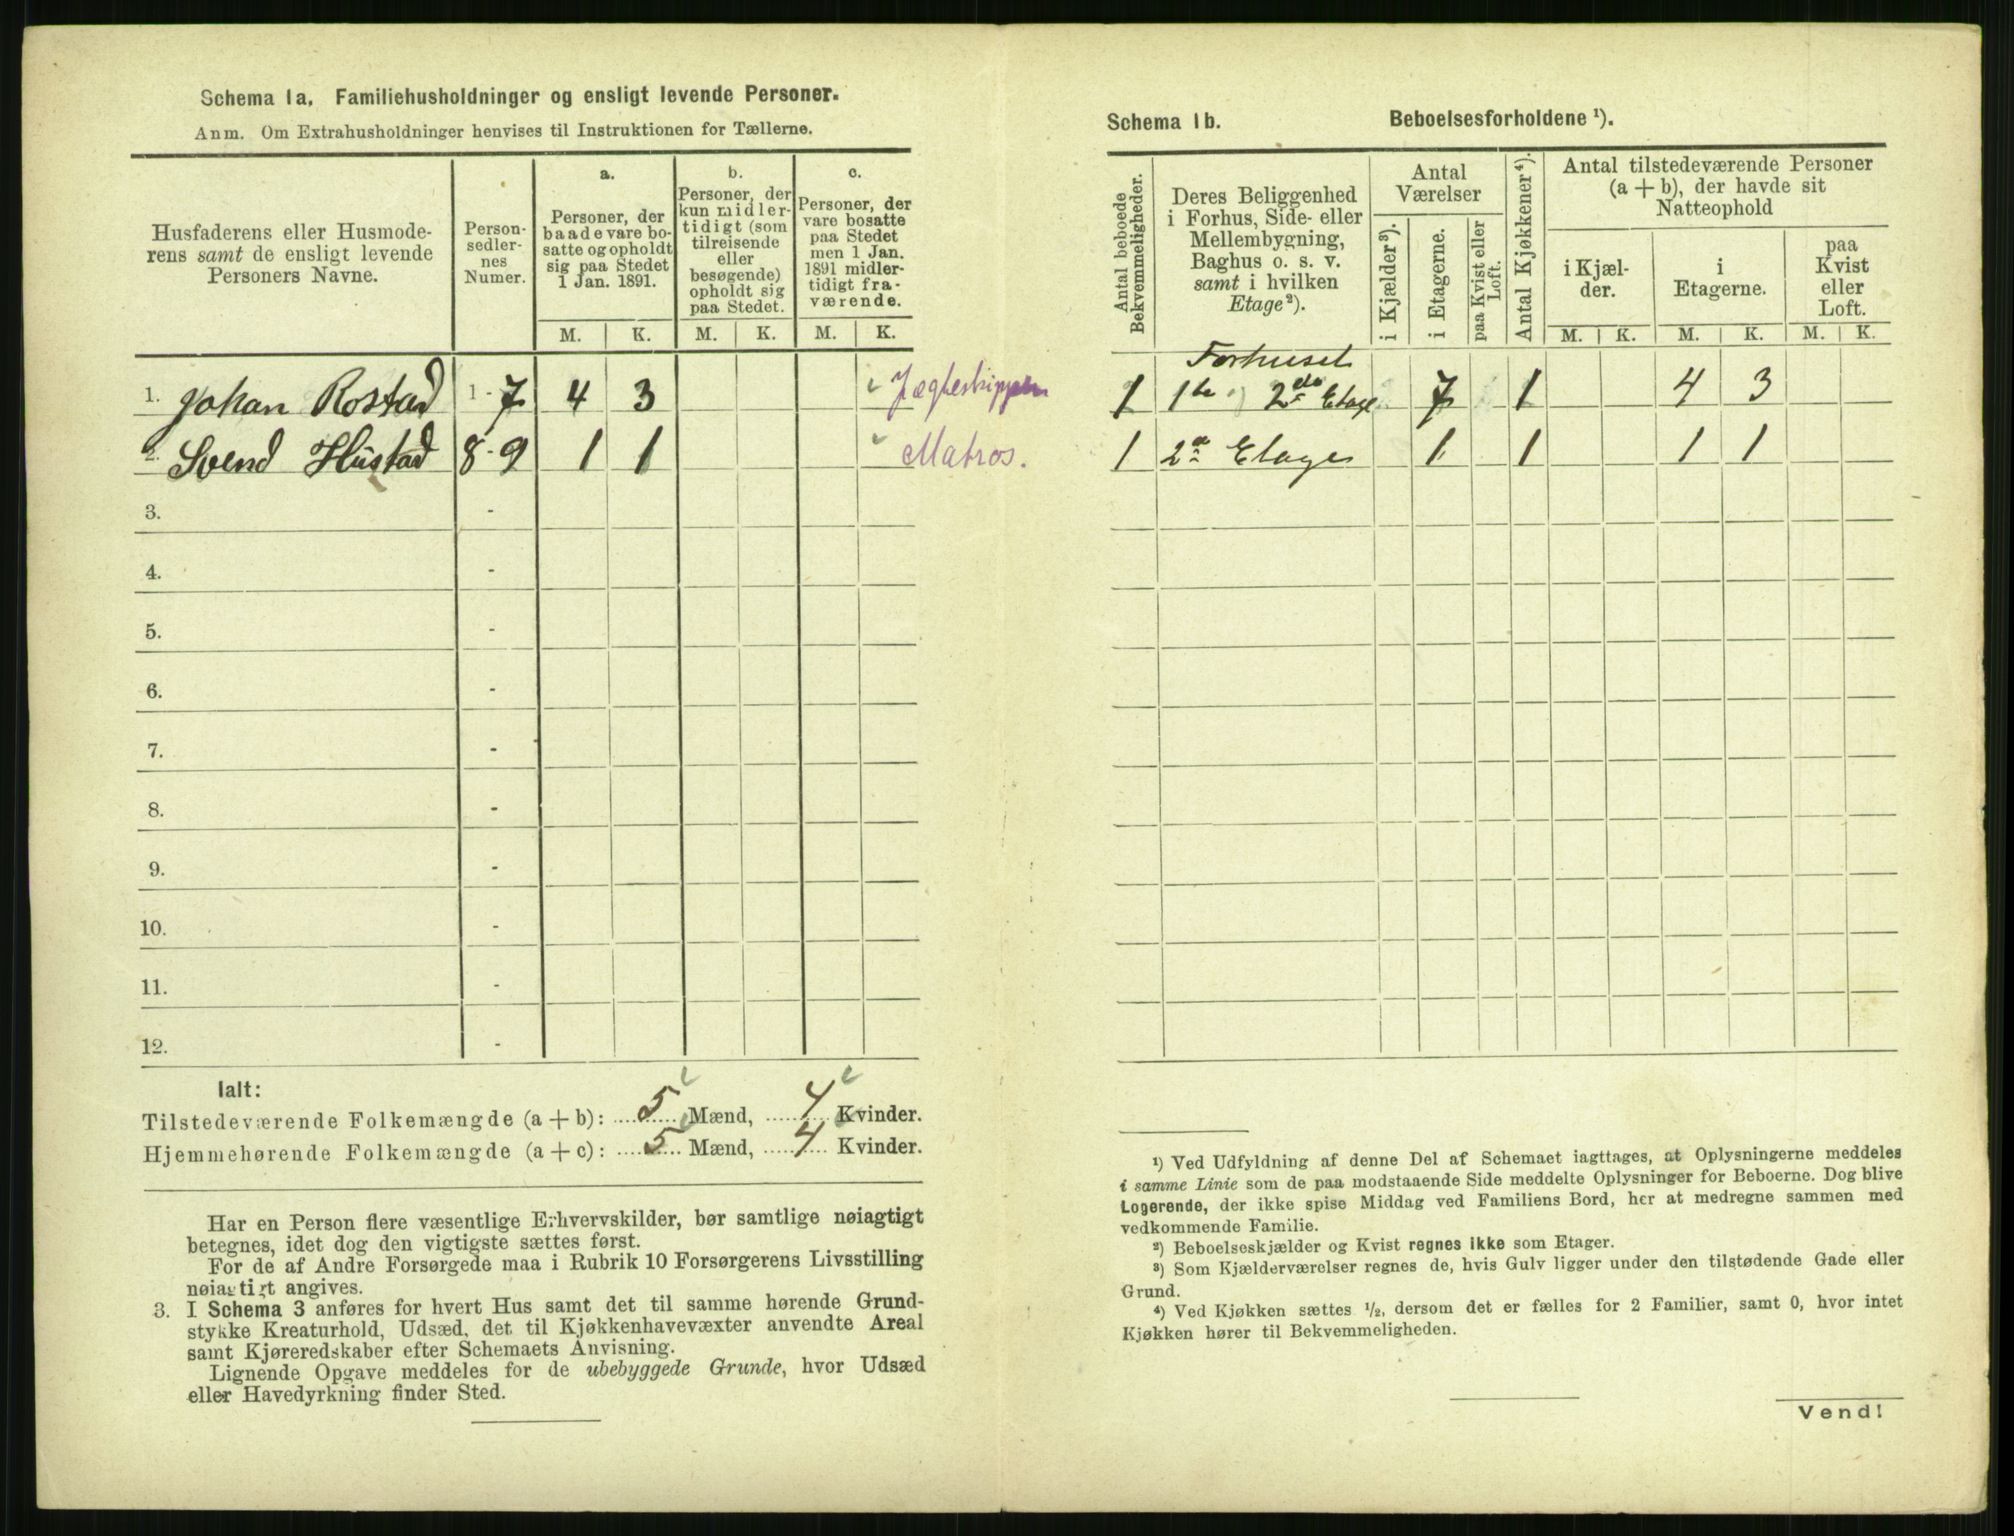 Schema 1a. Familiehusholdninger og ensligt levende Personer.
Anm. Om Extrahusholdninger henvises til Instruktionen for Tællerne.
Husfaderens eller Husmode-
rens samt de ensligt levende
Personers Navne.
Person-
sedler-
nes
Numer.
a.
Personer, der
baade vare bo-
satte og opholdt
sig paa Stedet
1 Jan. 1891.
M. K.
b.
Personer, der
kun midler-
tidigt (som
tilreisende
eller
besøgende)
opholdt sig
paa Stedet.
M. K.
c.
Personer, der
vare bosatte
paa Stedet
men 1 Jan.
1891 midler-
tidigt fra-
værende.
M. K.
1. Johan Rostad 1-7 4 3 Jægteskipper
2. Svend Hustad 8-9 1 1 Matros.
3. -
4. -
5. -
6. -
7. -
8. -
9. -
10. -
11. -
12. -
Ialt:
Tilstedeværende Folkemængde (a + b): 5 Mænd, 4 Kvinder.
Hjemmehørende Folkemængde (a + c): 5 Mænd, 4 Kvinder.
Har en Person flere væsentlige Erhvervskilder, bør samtlige nøiagtigt
betegnes, idet dog den vigtigste sættes først.
For de af Andre Forsørgede maa i Rubrik 10 Forsørgerens Livsstilling
nøiagtigt angives.
3. I Schema 3 anføres for hvert Hus samt det til samme hørende Grund-
stykke Kreaturhold, Udsæd, det til Kjøkkenhavevæxter anvendte Areal
samt Kjøreredskaber efter Schemaets Anvisning.
Lignende Opgave meddeles for de ubebyggede Grunde, hvor Udsæd
eller Havedyrkning finder Sted.
Schema 1b. Beboelsesforholdene ¹).
Antal beboede
Bekvemmeligheder.
Deres Beliggenhed
i Forhus, Side- eller
Mellembygning,
Baghus o. s. v.
samt i hvilken
Etage²).
Antal
Værelser
i Kjælder³).
i Etagerne.
paa Kvist eller
Loft.
Antal Kjøkkener⁴).
Antal tilstedeværende Personer
(a + b), der havde sit
Natteophold
i Kjæl-
der.
M. K.
i
Etagerne.
M. K.
paa
Kvist
eller
Loft.
M. K.
Forhuset
1 1te og 2den Etage 7 1 4 3
1 2den Etage 1 1 1 1
¹) Ved Udfyldning af denne Del af Schemaet iagttages, at Oplysningerne meddeles
i samme Linie som de paa modstaaende Side meddelte Oplysninger for Beboerne. Dog blive
Logerende, der ikke spise Middag ved Familiens Bord, her at medregne sammen med
vedkommende Familie.
²) Beboelseskjælder og Kvist regnes ikke som Etager.
³) Som Kjælderværelser regnes de, hvis Gulv ligger under den tilstødende Gade eller
Grund.
⁴) Ved Kjøkken sættes ½, dersom det er fælles for 2 Familier, samt 0, hvor intet
Kjøkken hører til Bekvemmeligheden.
Vend!